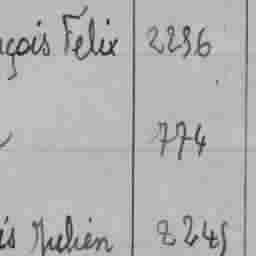 çois Felix 2296
774
is Julien 2245